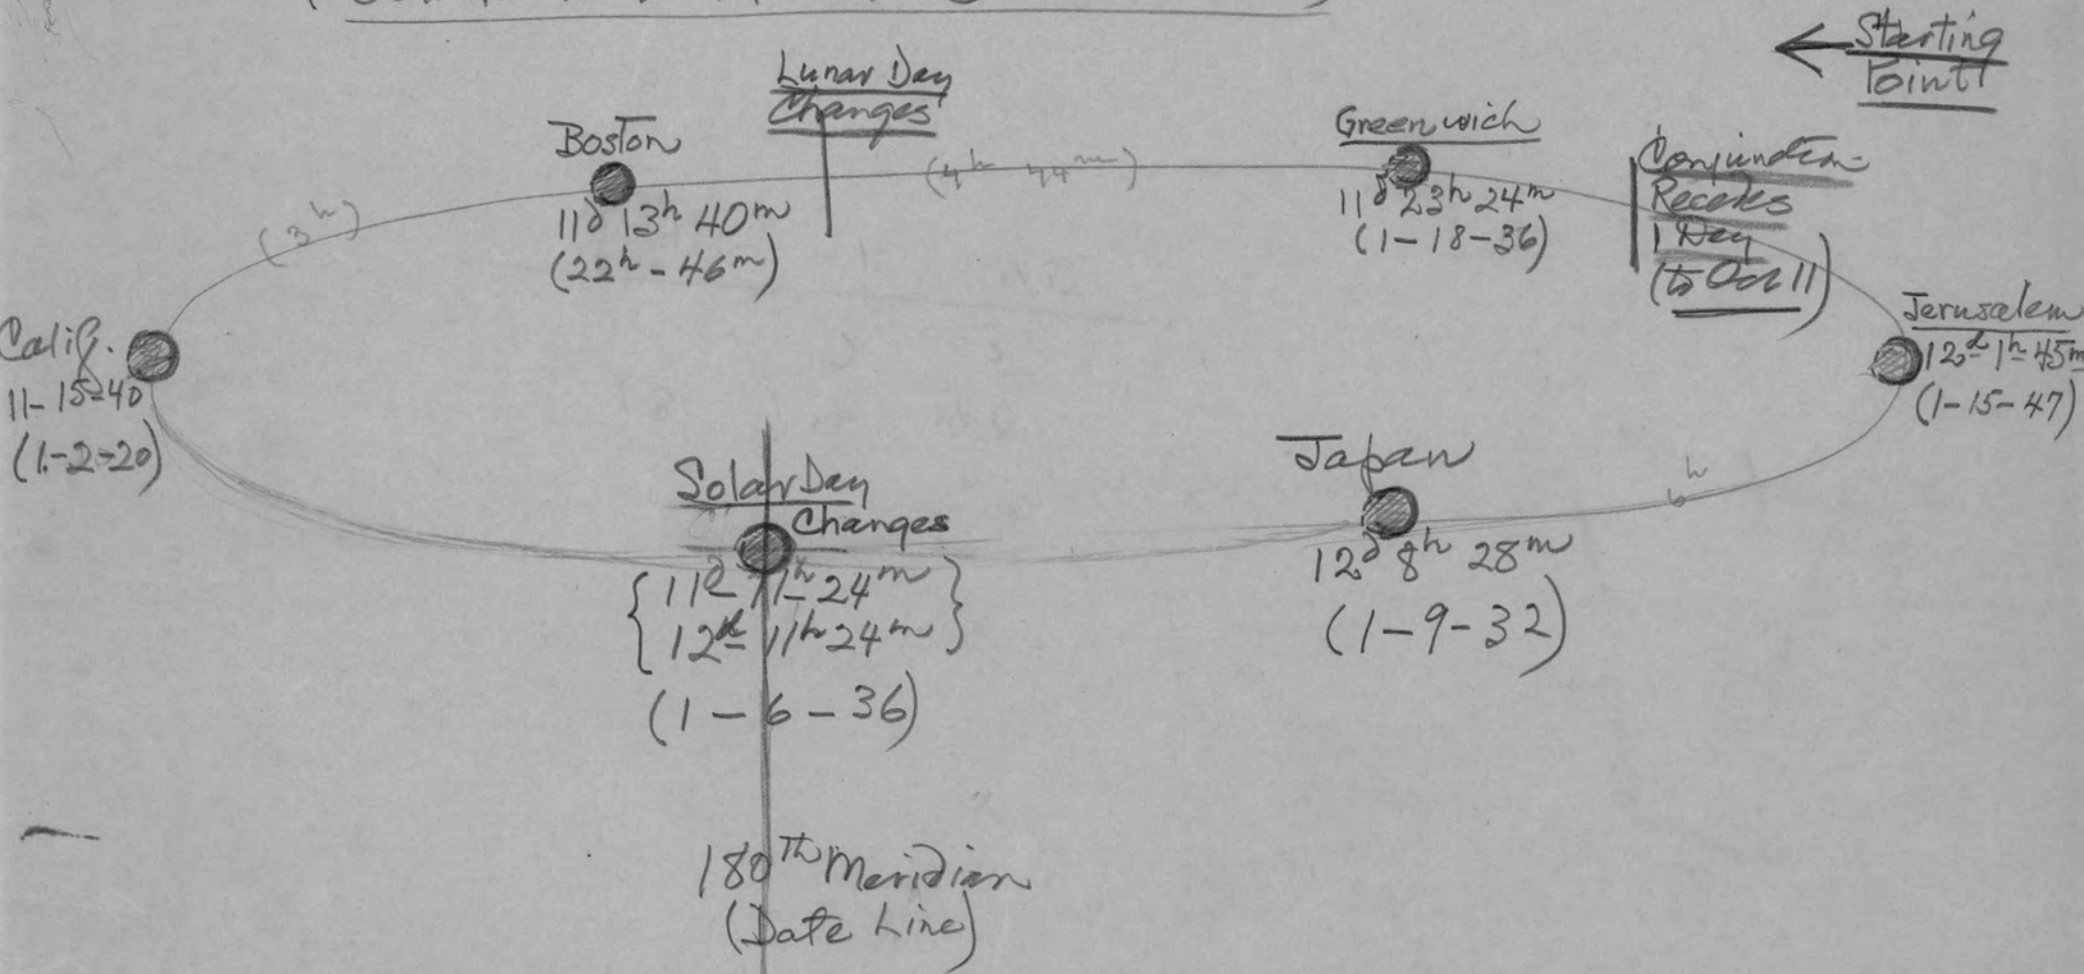 Starting
Point
Lunar Day
Changes
Boston
11d 13h 40m
(22h - 46m)
(4h 44m)
Greenwich
11d 23h 24m
(1-18-36)
Conjunction
Recedes
1 Day
(to Oct 11)
(3h)
Calif.
11-15-40
(1-2-20)
Jerusalem
12d 1h 45m
(1-15-47)
Solar Day
Changes
{11d 11h 24m}
{12d 11h 24m}
(1-6-36)
Japan
12d 8h 28m
(1-9-32)
6h
180Th Meridian
(Date Line)